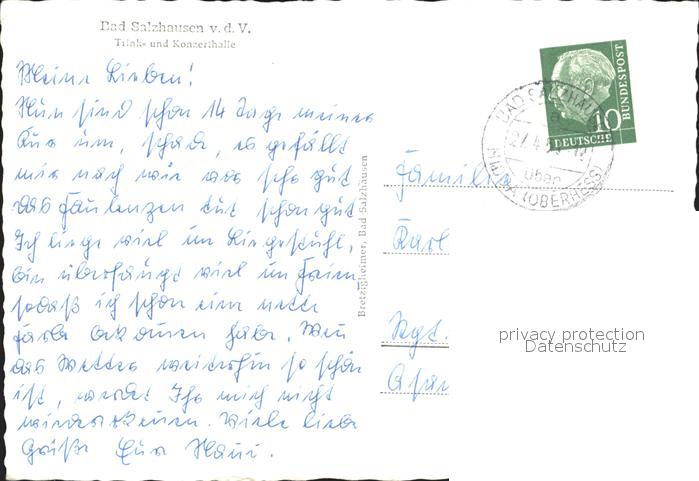 Bad Salzhausen v. d. V.
Trink- und Konzerthalle
Meine Lieben!
Nun sind schon 14 Tage meiner
Kur um, schade, es gefällt
mir nach wie vor sehr gut
das Faulenzen tut schon gut
Ich liege viel im Liegestuhl,
bin überhaupt viel im Freien
sodaß ich schon eine nette
Farbe bekommen habe. Wenn
das Wetter weiterhin so schön
ist, werdet Ihr mich nicht
wiedererkennen. Viele liebe
Grüße Eure
Bretzigheimer, Bad Salzhausen
Familie
Karl
BAD SALZHAUSEN
über
NIDDA (OBERHESS)
10
DEUTSCHE
BUNDESPOST
privacy protection
Datenschutz